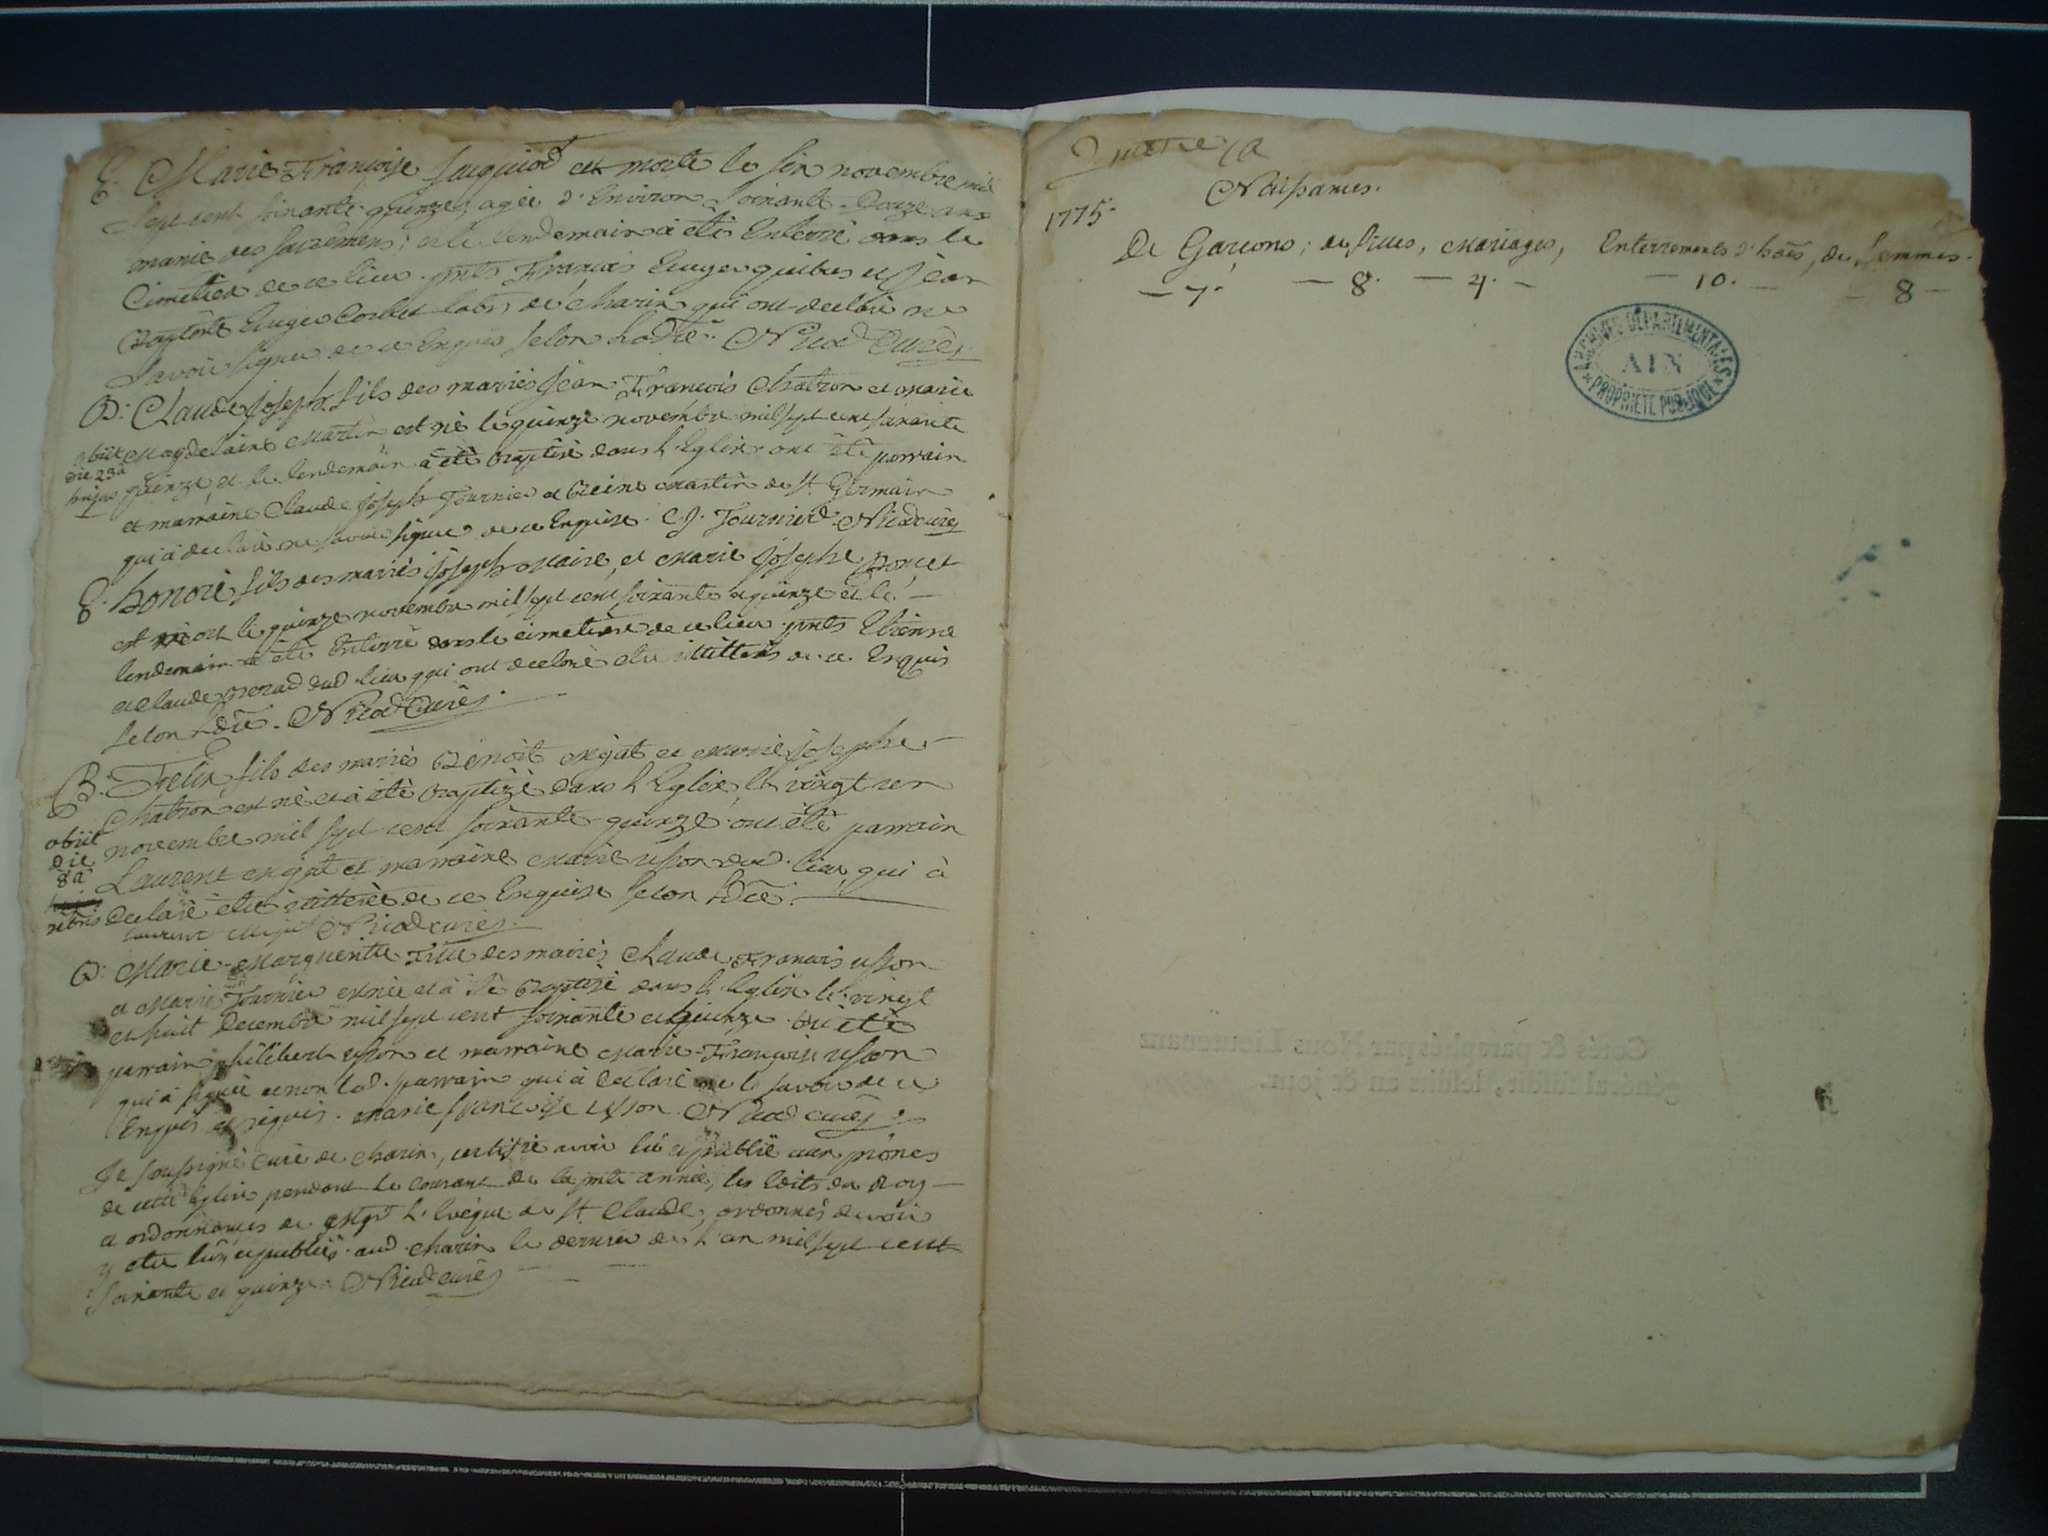 E. Marie Françoise Jacquiod est morte le six novembre mil
sept cent soixante quinze, agée d'Environ soixante Douze ans
munie des sacrémens, et le lendemain à été Enterré dans le
Cimetiere de ce lieu. pnts François Euger et Jean
Baptiste Euger Corbet labs de Charix qui ont declaré ne
savoir signer de ce Enquis selon
B. Claude Joseph fils des mariés Jean François Chatron et marie
Magdelaine Martin, est né le quinze novembre mil sept cent soixante
obiit
die 23a
hujus
quinze, et le lendemain à été baptisé dans l'Eglise ont été parrain
et marraine Claude Joseph Tournier et Martin de St. Germain
qui à declaré ne savoir signer de ce Enquise. C. J. Tournier Nicod curé
E. honoré fils des mariés joseph Maire, et Marie Josephe Poncet
est mort le quinze novembre mil sept cent soixante et quinze et le
lendemain à été Enterré dans le cimetiere de ce lieu pnts Etienne
et Claude dud. lieu qui ont declaré etre illitterés de ce Enquis
selon Nicod Curé
B. Felix, fils des mariés Benoit et Marie josephe
Chatron est né et à été baptizé dans l'Eglise, le vingt un
obiit
die
8a
novembre mil sept cent soixante quinze ont été parrain
Laurent et marraine Marie dud. lieu, qui à
declaré etre illitterée de ce Enquise selon
Laurent Nicod curé
B. Marie Marguerite Fille des mariés Claude François
et Marie Tournier est née et à été Baptisé dans l'Eglise le vingt
et huit Decembre mil sept cent soixante et quinze ont été
parrain philibert et marraine Marie Françoise
qui à signé et non led. parrain qui à declaré ne le savoir de ce
Enquis et réquis. Marie francoise Nicod curé
Je soussigné Curé de Charix, certifie avoir lu et publié aux prônes
de cette Eglise pendant le courant de la pnte année, les Edits du Roy
et ordonnances de Msgr L'Evêque de St. Claude, ordonnés devoir
y etre lus et publiés. aud. Charix le dernier de l'an mil sept cent
soixante et quinze. Nicod curé
1775.
Naissances.
De Garçons, de filles, Mariages, Enterrements d'hoes, de femmes.
— 7. — 8. — 4. — — 10. — — 8 —
ARCHIVES DÉPARTEMENTALES
AIN
PROPRIÉTÉ PUBLIQUE
Cotés & paraphés par Nous Lieutenant
général susdit, lesdits an & jour.